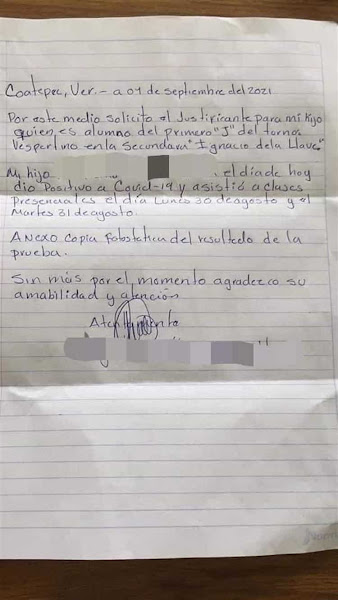 Coatepec, Ver. - a 01 de septiembre del 2021
Por este medio solicito el Justificante para mi hijo
quien, es alumno del primero "J" del torno
Vespertino en la secundara "Ignacio de la Llave."
Mi hijo el día de hoy
dio Positivo a Covid-19 y asistió a clases
Presenciales el día Lunes 30 de agosto y el
Martes 31 de agosto.
Anexo copia fotostatica del resultado de la
prueba.
Sin más por el momento agradezco su
amabilidad y atención
Atentamente